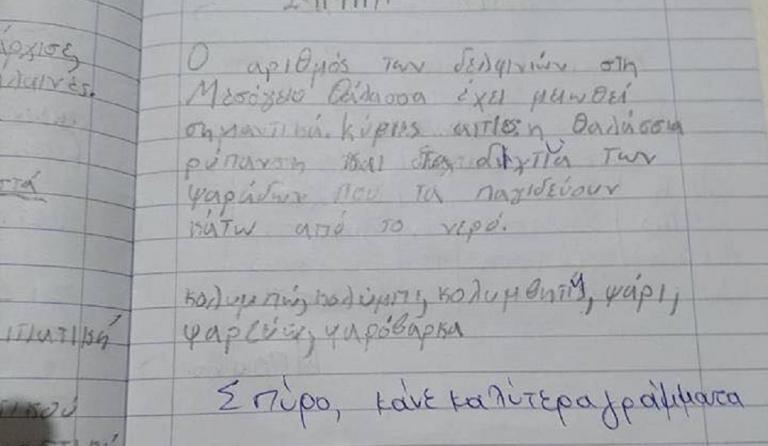 άρχισε
λαινές.
στά
Ο αριθμός των δελφινιών στη
Μεσόγειο Θάλασσα έχει μειωθεί
σημαντικά. Κύριες αιτίες η θαλάσσια
ρύπανση και δίχτυα των
ψαράδων που τα παγιδεύουν
κάτω από το νερό.
κολυμπώ, κολύμπι, κολυμβητής, ψάρι,
ψαρεύω, ψαρόβαρκα
Σπύρο, κάνε καλύτερα γράμματα